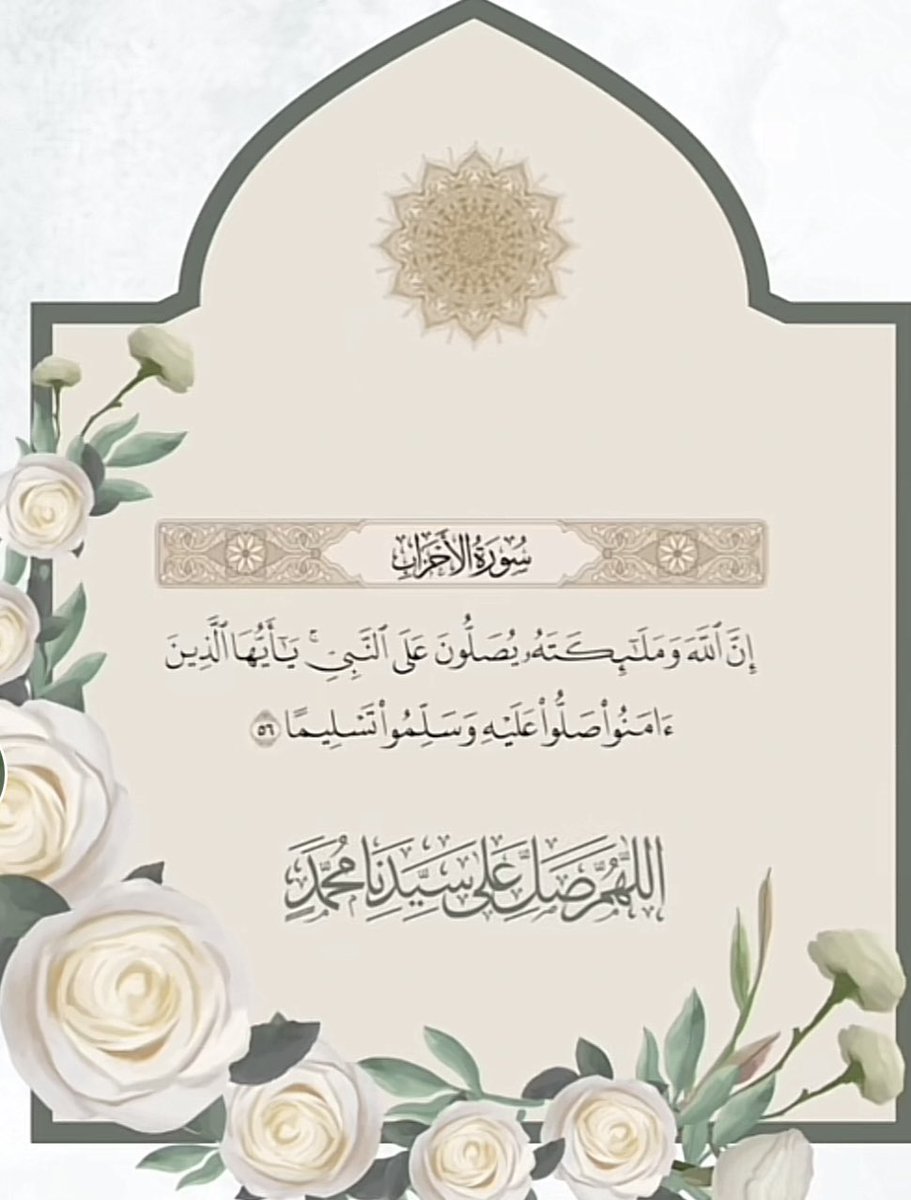 سُورَةُ الأَحْزَابِ
إِنَّ ٱللَّهَ وَمَلَـٰٓئِكَتَهُۥ يُصَلُّونَ عَلَى ٱلنَّبِىِّ ۚ يَـٰٓأَيُّهَا ٱلَّذِينَ
ءَامَنُوا۟ صَلُّوا۟ عَلَيْهِ وَسَلِّمُوا۟ تَسْلِيمًا ٥٦
اللَّهُمَّ صَلِّ عَلَى سَيِّدِنَا مُحَمَّدٍ